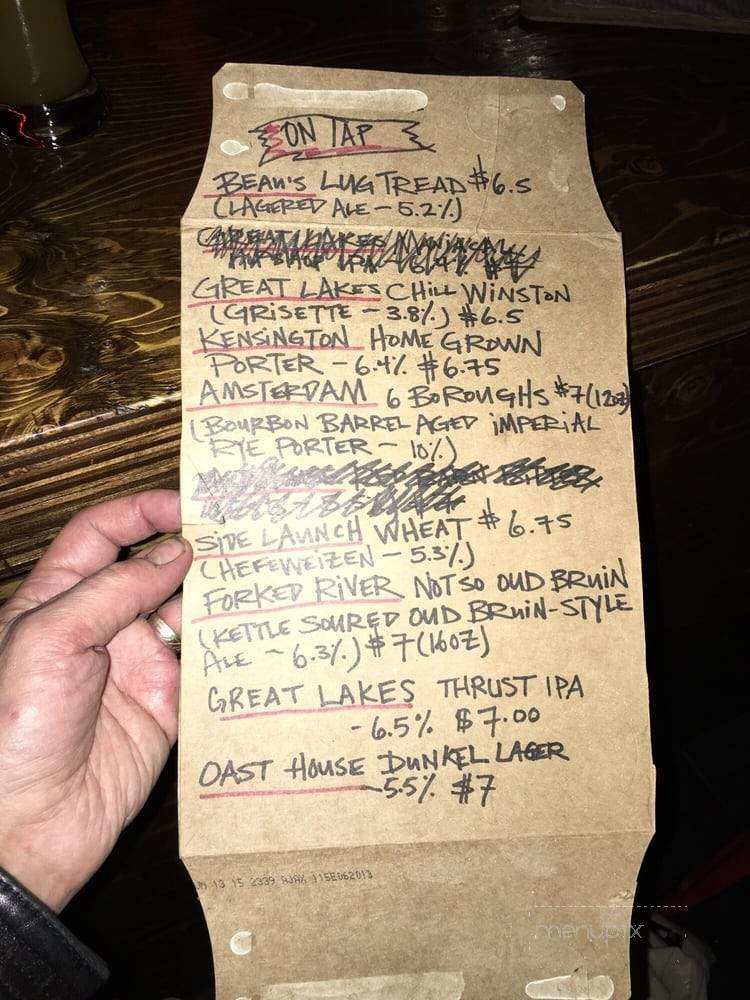 ON TAP
BEAU'S LUGTREAD $6.5
(LAGERED ALE - 5.2%)
GREAT LAKES
GREAT LAKES CHILL WINSTON
(GRISETTE - 3.8%) $6.5
KENSINGTON HOMEGROWN
PORTER - 6.4% $6.75
AMSTERDAM 6 BOROUGHS $7(12oz)
(BOURBON BARREL AGED IMPERIAL
RYE PORTER - 10%)
SIDE LAUNCH WHEAT $6.75
(HEFEWEIZEN - 5.3%)
FORKED RIVER NOT SO OUD BRUIN
(KETTLE SOURED OUD BRUIN-STYLE
ALE - 6.3%) $7(16OZ)
GREAT LAKES THRUST IPA
- 6.5% $7.00
OAST HOUSE DUNKEL LAGER
- 5.5% $7
13 15 2339 AJAX 115E062013
menupix